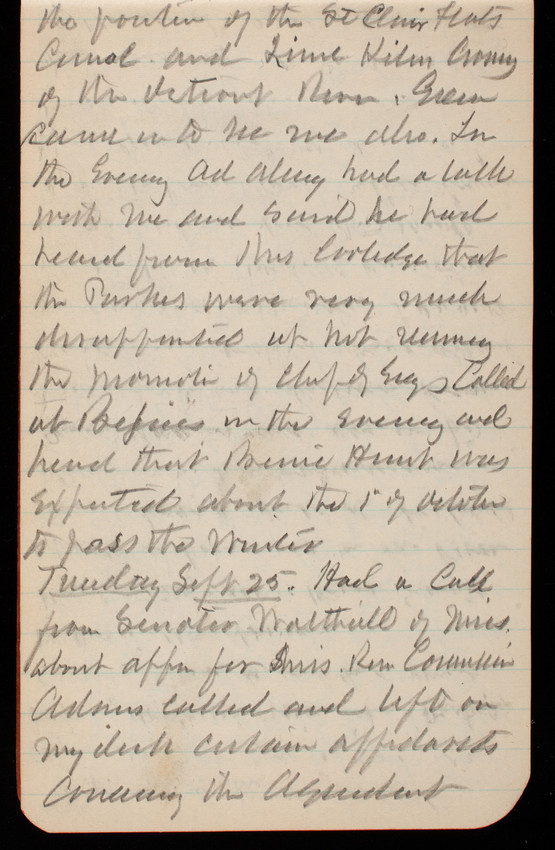 the portion of the St Clair Flats
Canal and Lime Kiln Crossing
of the Detroit River. Green
came in to see me also. In
the Evening Ad Alexy had a talk
with me and said he had
heard from Mrs Coolidge that
the Parkes were very much
disappointed at not
the of Chf of Engs Called
at in the evening and
heard that Bernie Hunt was
Expected about the 1st of October
to pass the Winter
Tuesday Sept 25. Had a Call
from Senator Walthall of Miss.
about appn for Miss. Riv Commission
Adams called and left on
my desk certain affidavits
Concerning the